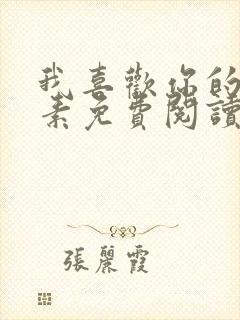 我喜歡你的
素免費閱讀
張麗霞